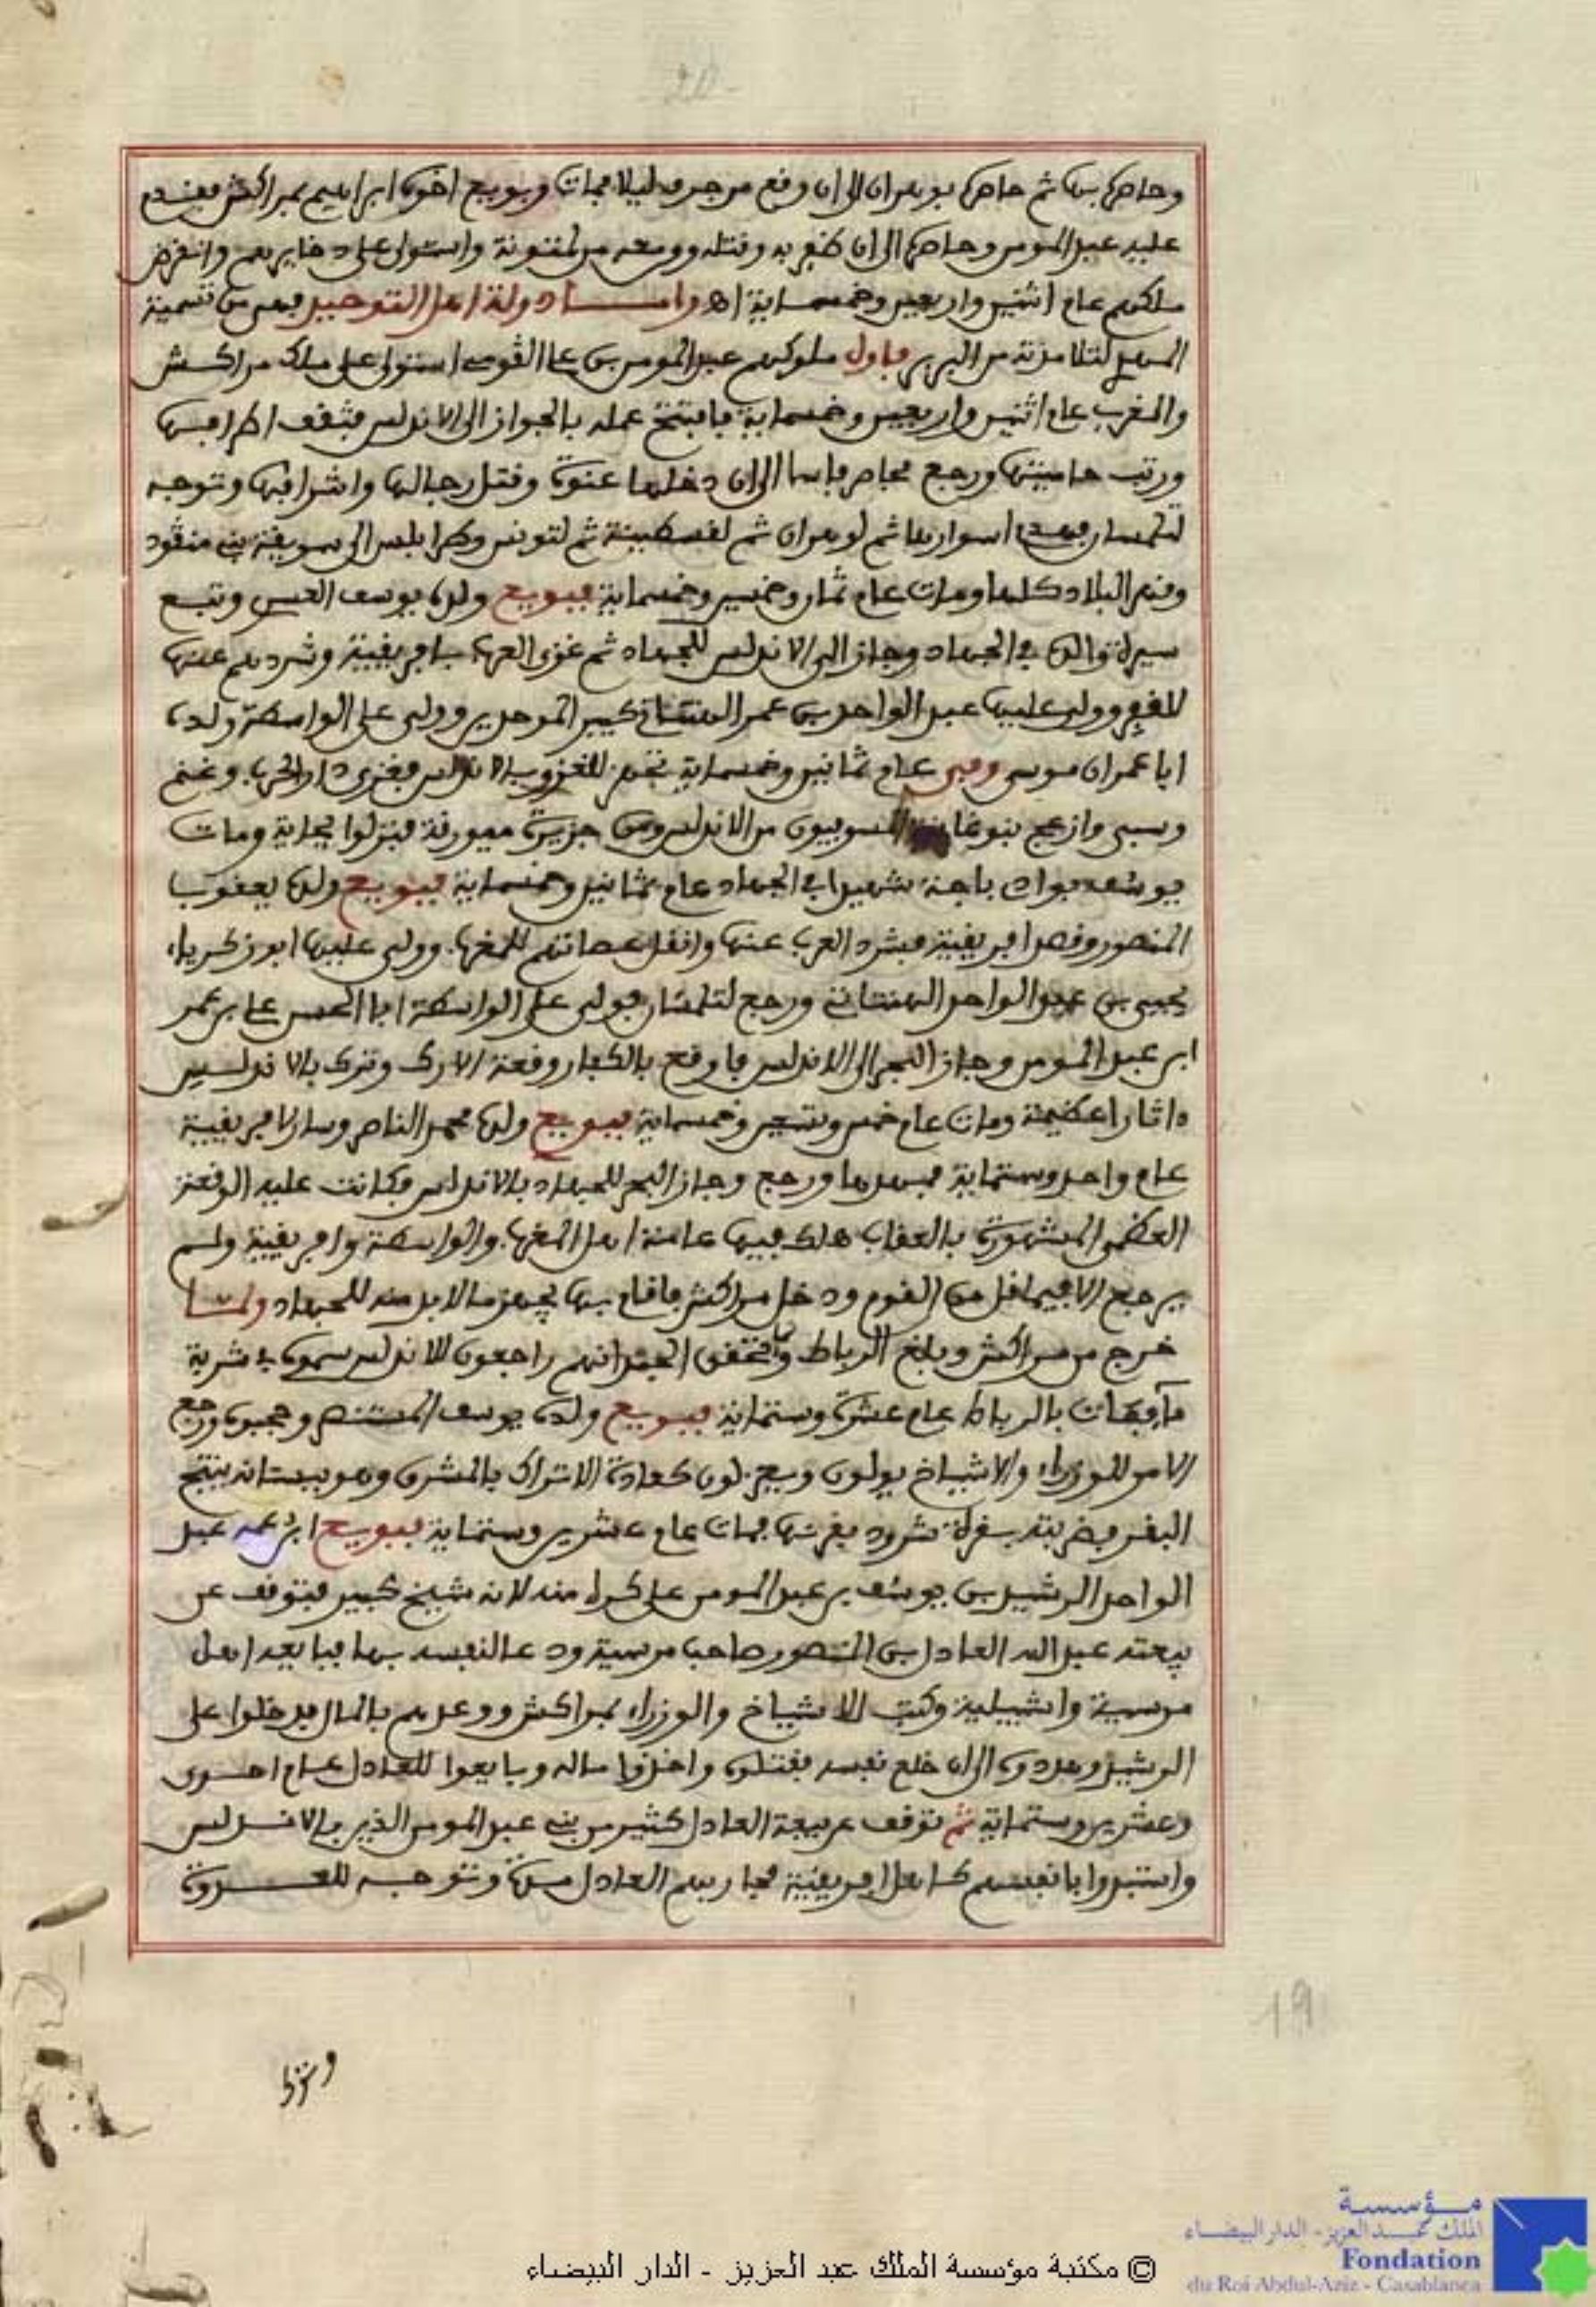 20
وحاصره بها ثم حاصره بوهران الى ان وقع من جرف ليلا فمات وبويع اخوه ابراهيم بمراكش فقدم
عليه عبد المومن وحاصره الى ان ظفر به وقتله ومن معه من لمتونة واستولى على دخايرهم وانقرض
ملكهم عام اثنين واربعين وخمسماية اه واما دولة اهل التوحيد فهي من تسمية
المهدي لتلامذته من البربر فاول ملوكهم عبد المومن بن علي القومي استولى على ملك مراكش
والمغرب عام اثنين واربعين وخمسماية فافتتح عمله بالجواز الى الاندلس فثقف اطرافها
ورتب حاميتها ورجع فحاصر فاسا الى ان دخلها عنوة وقتل رجالها واشرافها وتوجه
لتلمسان فهدم اسوارها ثم لوهران ثم لقسطينة ثم لتونس وطرابلس الى سويقة بني مثقود
ومهد البلاد كلها ومات عام ثمان وخمسين وخمسماية فبويع ولده يوسف العسري وتبع
سيرة والده في الجهاد وجاز الى الاندلس للجهاد ثم غزى العرب بافريقية وشردهم عنها
للمغرب وولى عليها عبد الواحد بن عمر الهنتاتي كبير الموحدين وولى على الواسطة ولده
ابا عمران موسى وفي عام ثمانين وخمسماية تجهز للغزو بالاندلس فغزى دار الحرب وغنم
وسبى وازعج بنو غانية المسوفيون من الاندلس ومن جزيرة ميورقة فنزلوا بجاية ومات
يوسف بوادي باجة شهيدا في الجهاد عام ثمانين وخمسماية فبويع ولده يعقوب
المنصور وقصد افريقية فشرد العرب عنها وانقل عصاتهم للمغرب وولى عليها ابو زكرياء
يحيى بن عبد الواحد الهنتاتي ورجع لتلمسان فولى على الواسطة ابا الحسن علي بن عمر
ابن عبد المومن وجاز البحر الى الاندلس فاوقع بالكفار وقعة الارك وترك بالاندلس
ءاثارا عظيمة ومات عام خمس وتسعين وخمسماية فبويع ولده محمد الناصر وسار لافريقية
عام واحد وستماية فمهدها ورجع وجاز البحر للجهاد بالاندلس فكانت عليه الوقعة
العظمى المشهورة بالعقاب هلك فيها عامة اهل المغرب والواسطة وافريقية ولم
يرجع الا فيما قل من القوم ودخل مراكش فاقام بها يجهز ما لا بد منه للجهاد ولما
خرج من مراكش وبلغ الرباط وتحقق الجند انهم راجعون للاندلس سموه في شربة
ماء فمات بالرباط عام عشرة وستماية فبويع ولده يوسف المستنصر وحجبوه ورجع
الامر للوزراء والاشياخ يولون ويعزلون كعادة الاتراك بالمشرق وهو ببستانه ينتج
البقر فضربته بقرة شرود بقرنها فمات عام عشرين وستماية فبويع ابن عمه عبد
الواحد الرشيد بن يوسف بن عبد المومن على كره منه لانه شيخ كبير فتوقف عن
بيعته عبد الله العادل بن المنصور صاحب مرسية ودعا لنفسه بها فبايعه اهل
مرسية واشبيلية وكتب للاشياخ والوزراء بمراكش ووعدهم بالمال فدخلوا على
الرشيد وهددوه الى ان خلع نفسه فقتلوه واخذوا ماله وبايعوا للعادل عام احدى
وعشرين وستماية ثم توقف عن بيعة العادل كثير من بني عبد المومن الذين بالاندلس
واستبدوا بانفسهم كاهل افريقية فحاربهم العادل مدة وتوجه للعدوة
19
وترك
مؤسسة
الملك عبد العزيز - الدار البيضاء
Fondation
du Roi Abdul-Aziz - Casablanca
© مكتبة مؤسسة الملك عبد العزيز - الدار البيضاء